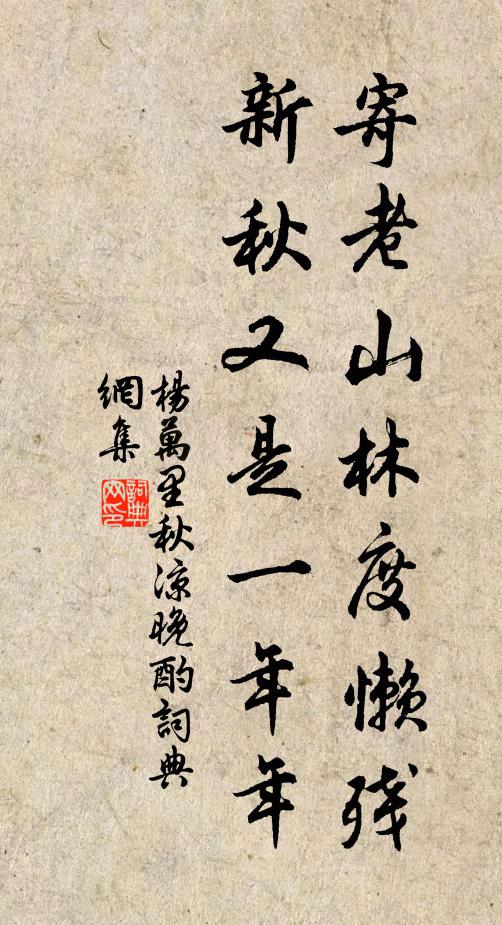 寄老山林度懒残
新秋又是一年年
楊萬里秋凉晚酌詞典
網集
詞典
网印